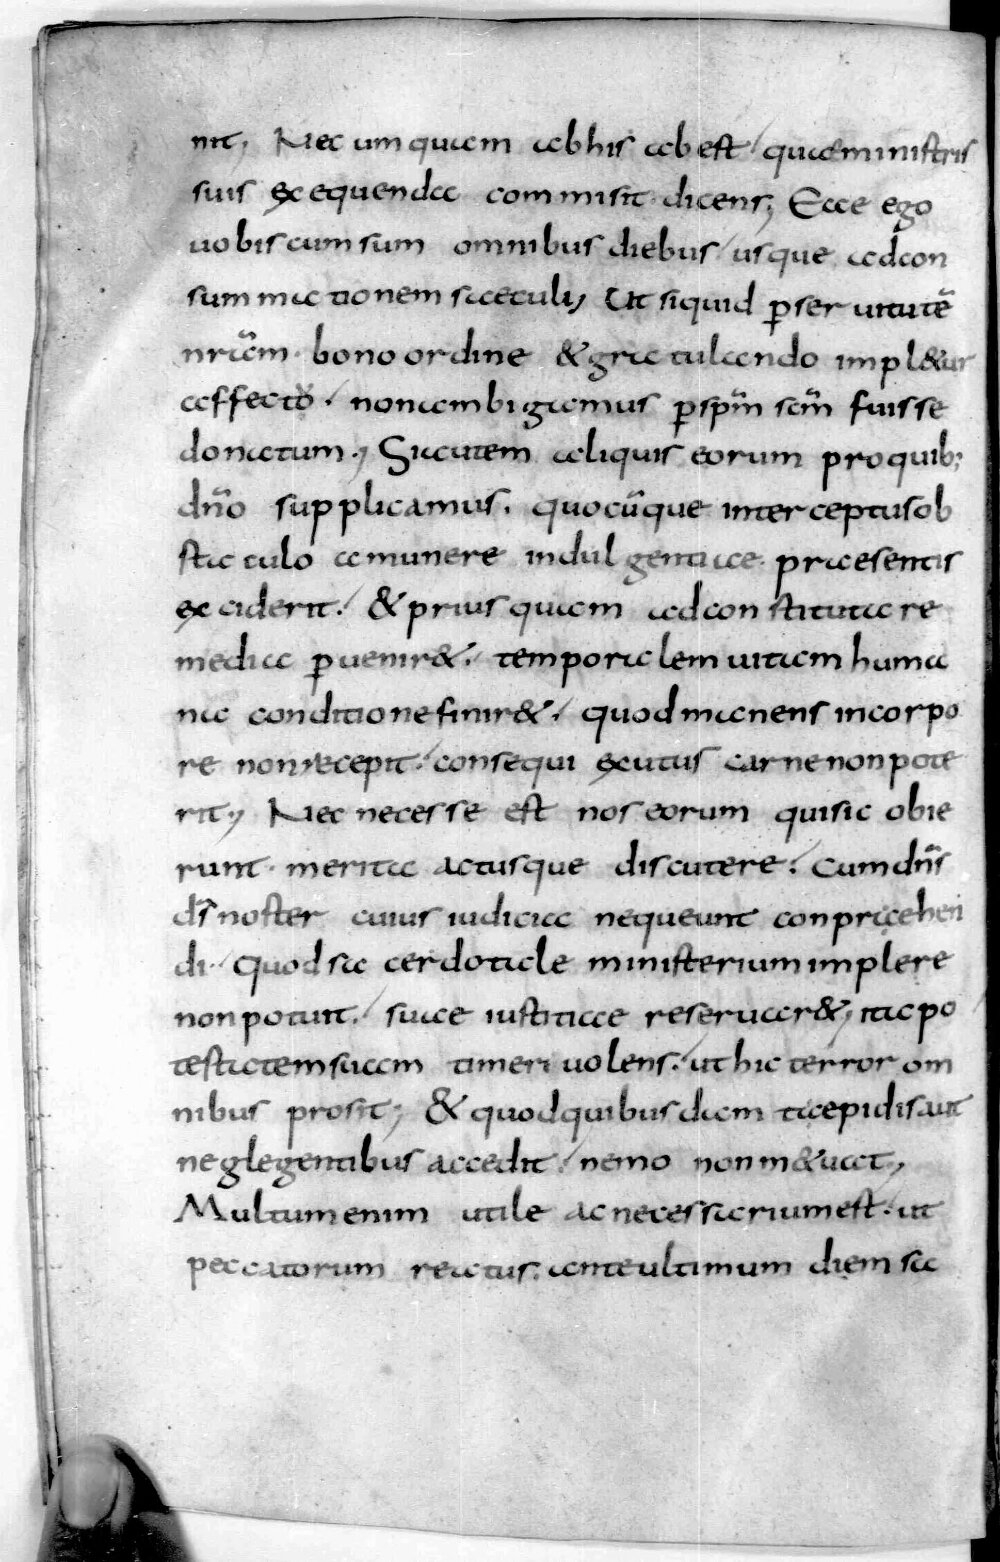 nit; Nec umquam ab his abest / quae ministris
suis exequenda commisit dicens; Ecce ego
uobiscum sum omnibus diebus / usque ad con
summationem saeculi; Ut siquid ꝑ seruitutē
nr̄am bono ordine & gratulando impl&ur
affectū / non ambigamus ꝑ sp̄m sc̄m fuisse
donatum; Si autem aliquis eorum pro quib;
dn̄o supplicamus. quocūque interceptus ob
staculo a munere indulgentiae praesentis
exciderit / & prius quam ad constituta re
media ꝑuenir& / temporalem uitam huma
na conditione finir& / quod manens in corpo
re non recepit / consequi exutus carne non pote
rit; Nec necesse est nos eorum qui sic obie
runt merita actusque discutere / Cum dn̄s
ds̄ noster cuius iudicia nequeunt conpraehen
di quod sacerdotale ministerium implere
non potuit / suae iustitiae reseruar&; ita po
testatem suam timeri uolens / ut hic terror om
nibus prosit; & quod quibusdam taepidis aut
neglegentibus accedit / nemo non m&uat;
Multum enim utile ac necessarium est / ut
peccatorum reatus ante ultimum diem sa